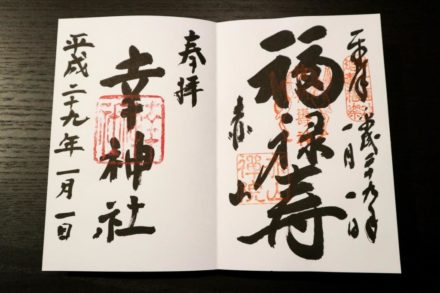 奉拝
平成二十九年一月一日
福禄寿
赤山
奉拝
幸神社
平成二十九年一月一日